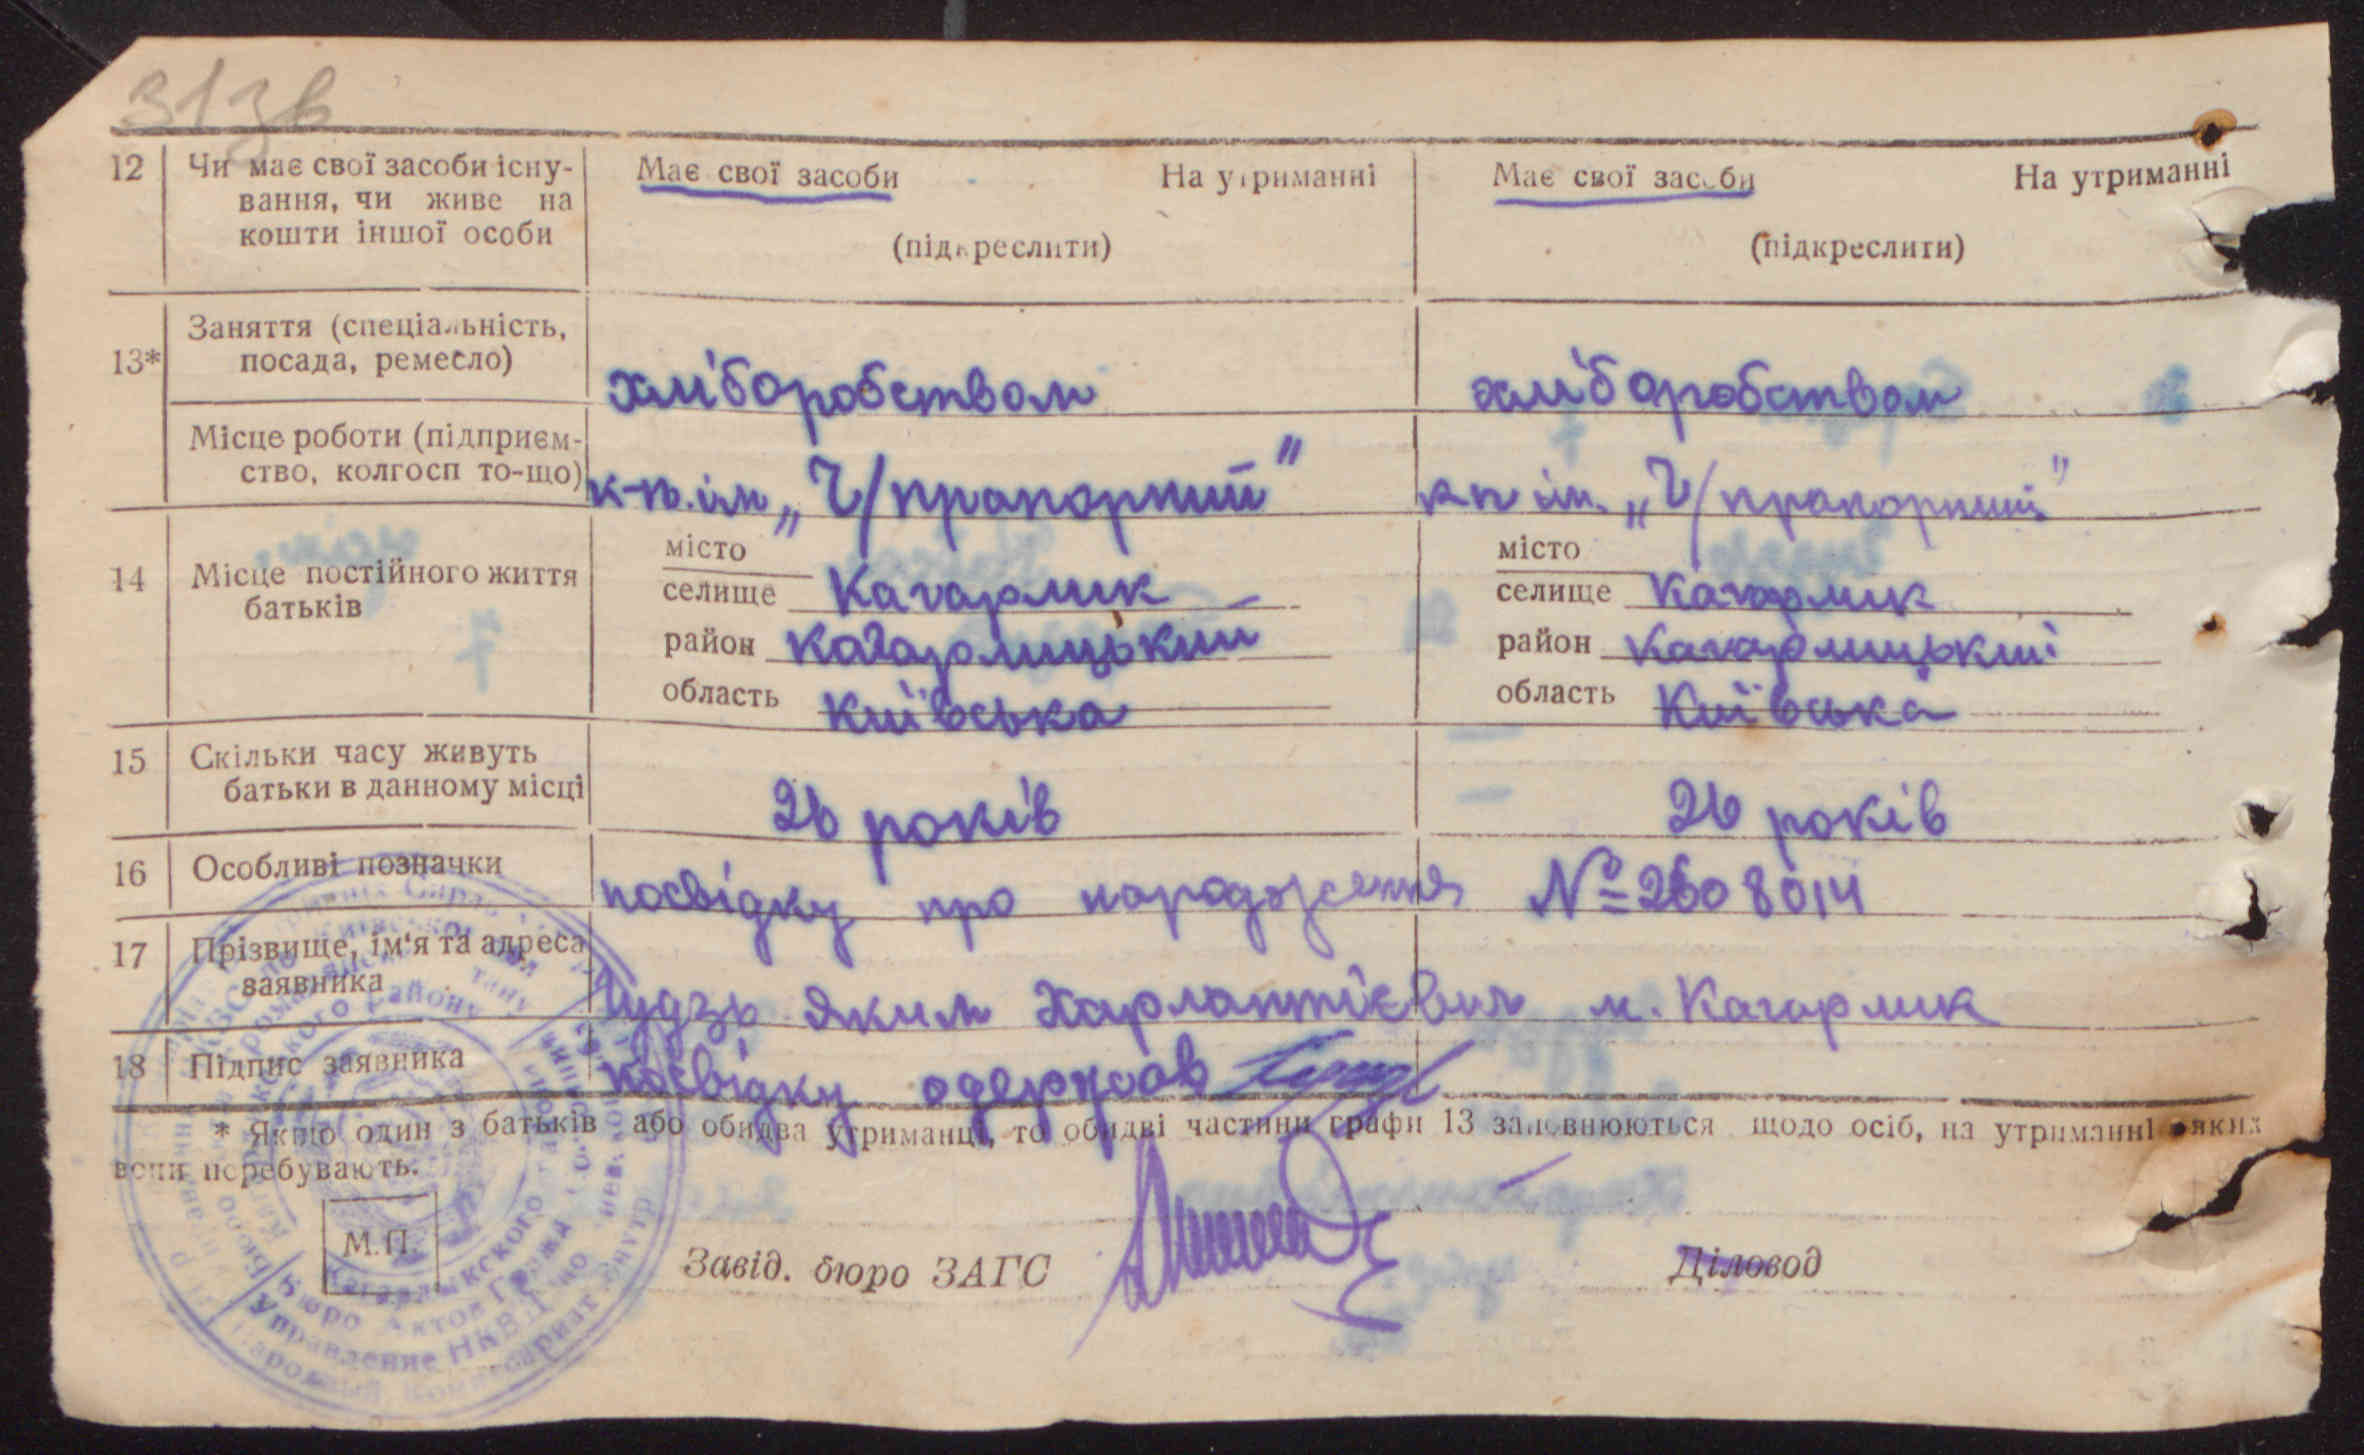 313в
12 Чи має свої засоби існу- Має свої засоби На утриманні Має свої засоби На утриманні
вання, чи живе на
кошти іншої особи (підкреслити) (підкреслити)
Заняття (спеціальність,
13* посада, ремесло) хліборобством хліборобством
Місце роботи (підприєм-
ство, колгосп то-що) к-п. ім „Ч/прапорний" к п ім. „Ч/прапорний"
місто місто
14 Місце постійного життя селище Кагарлик селище Кагарлик
батьків район Кагарлицький район Кагарлицький
область Київська область Київська
15 Скільки часу живуть
батьки в данному місці 26 років 26 років
16 Особливі позначки посвідку про народження № 2608014
17 Прізвище, ім'я та адреса
заявника Гудзь Яким Харлампієвич м. Кагарлик
18 Підпис заявника посвідку одержав
* Якщо один з батьків або обидва утриманці, то обидві частини графи 13 заповнюються щодо осіб, на утриманні яких
вони перебувають.
М.П.
Завід. бюро ЗАГС Діловод
Кагарлыкского
Бюро Актов Гражд
Управление НКВД
Народный Комиссариат Внутр